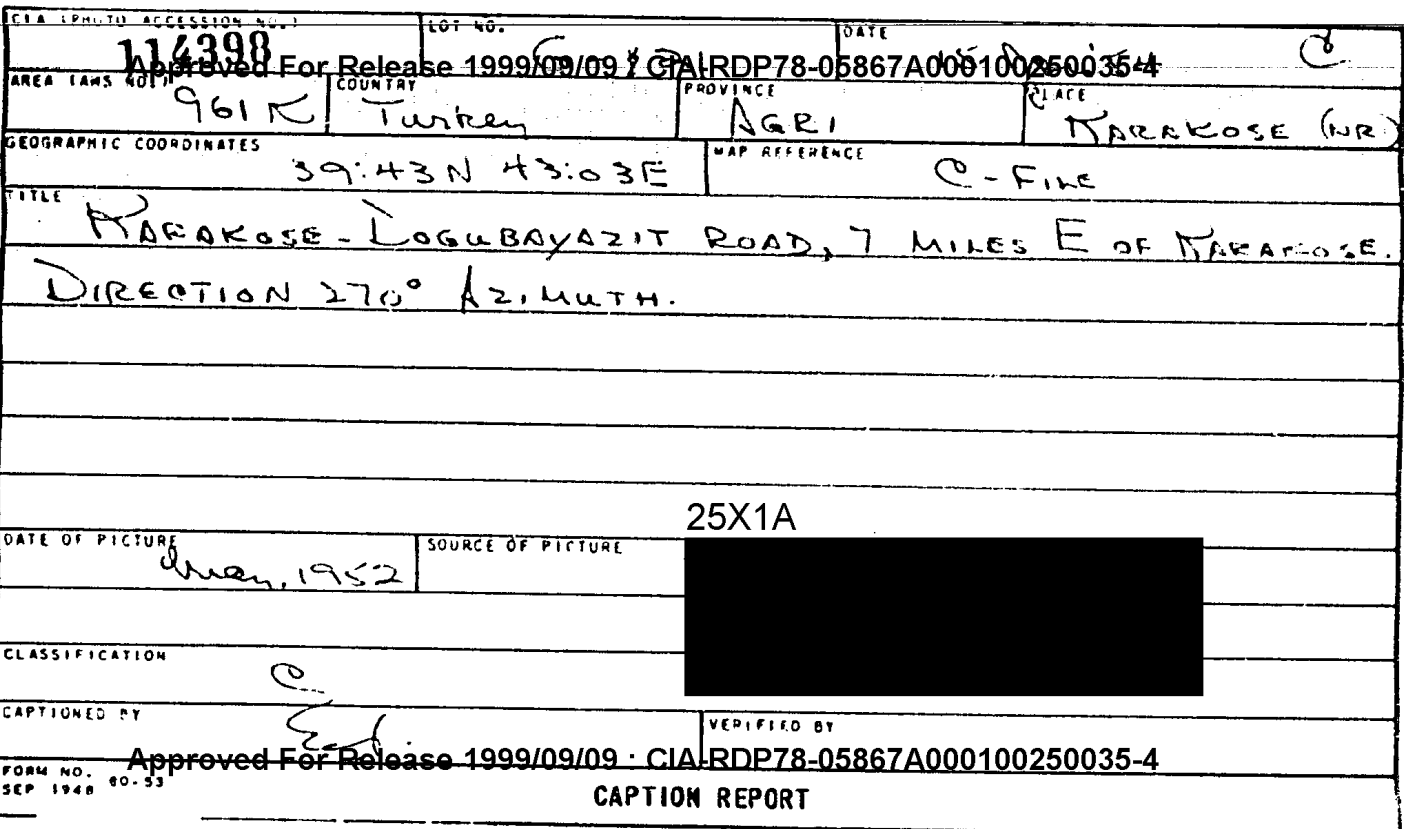 CIA (PHOTO ACCESSION NO.) LOT NO. DATE
114398 C
Approved For Release 1999/09/09 : CIA-RDP78-05867A000100250035-4
AREA (AMS NO.) COUNTRY PROVINCE PLACE
961 K Turkey AGRI KARAKOSE (NR)
GEOGRAPHIC COORDINATES MAP REFERENCE
39:43N 43:03E C-FILE
TITLE
KARAKOSE-DOGUBAYAZIT ROAD, 7 MILES E OF KARAKOSE.
DIRECTION 270° AZIMUTH.
25X1A
DATE OF PICTURE SOURCE OF PICTURE
May, 1952
CLASSIFICATION
C
CAPTIONED BY VERIFIED BY
Approved For Release 1999/09/09 : CIA-RDP78-05867A000100250035-4
FORM NO. 80-53
SEP 1948
CAPTION REPORT